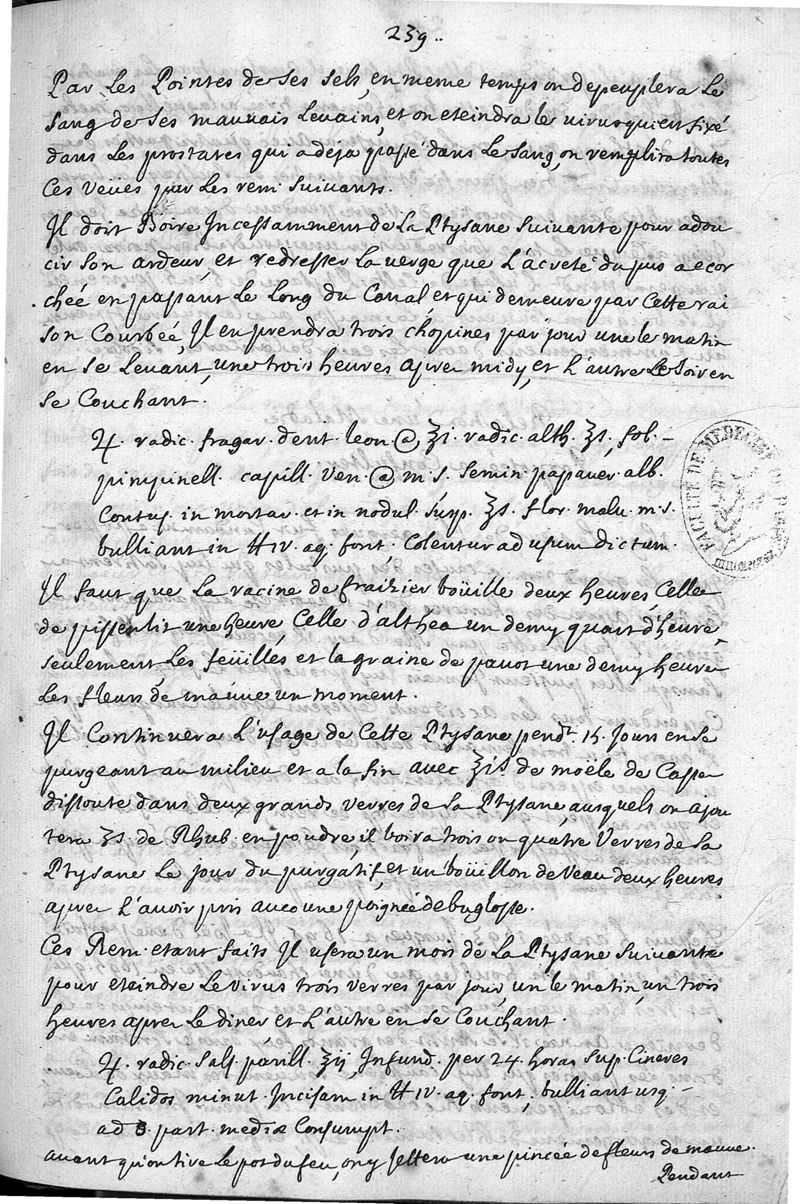 239..
Par Les Pointes de ses sels, en meme temps on depeuplera Le
sang de ses mauvais Levains, et on eteindra le virus qui est fixé
dans Les prostates qui a deja passé dans Le sang, on remplira toutes
Ces veües par Les rem. suivants.
Il doit Boire Incessamment de La Ptysane suivante pour adou
cir son ardeur, et redresser La verge que L'acreté du pus a ecor
chée en passant Le Long du Canal, et qui demeure par Cette rai
son Courbée, Il en prendra trois chopines par jour une le matin
en se Levant, une trois heures apres midy, et L'autre Le soir en
se Couchant.
♃. radic. fragar. dent. leon @ ʒi. radic. alth. ʒs. fol. -
pimpinell. capill. ven. @ m. s. semin. papauer. alb.
Contus. in mortar. et in nodul. susp. ʒs. flor. malu. m. s.
bulliant in ℔ iv. aq. font. Colentur ad usum dictum.
Il faut que La racine de fraizier boüille deux heures, Celle
de pissenlit une heure Celle d'althéa un demy quart d'heure,
seulement Les feüilles et la graine de pavot une demy heure
Les fleurs de mauve un moment.
Il Continuera L'usage de Cette Ptysane pendt. 15. Jours en se
purgeant au milieu et a la fin avec ʒis de moële de Casse
dissoute dans deux grands verres de sa Ptysane, ausquels on ajou
tera ʒs. de Rhub. en poudre, il boira trois ou quatre Verres de sa
Ptysane Le jour du purgatif, et un boüillon de Veau deux heures
apres L'avoir pris avec une poignée de buglosse.
Ces Rem. etant faits Il usera un mois de La Ptysane Suivante
pour eteindre Le virus trois verres par jour, un le matin, un trois
heures apres Le diner et L'autre en se Couchant.
♃. radic. Sals. parill. ʒij Infund. per 24. horas sup. Cineres
Calidos minut. Incisam in ℔ iv. aq. font, bulliant usq. -
ad part. mediæ Consumpt.
avant qu'on tire Le pot du feu, on y Jettera une pincée de fleurs de mauve.
Pendant
FACULTÉ DE MEDECINE DE PARIS